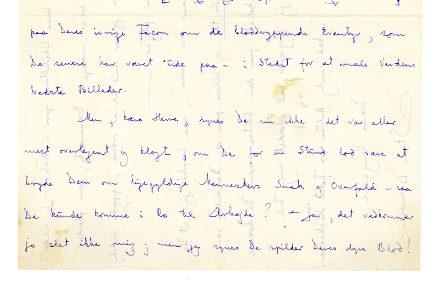 paa Deres ivrige Facon om de bloddryppende Eventyr, som
De senere har været ude paa – i Stedet for at male Verdens
bedste Billeder.
Men, kære Herre, synes De nu ikke det var aller
mest overlegent og klogt, om De for en Stund lod være at
bryde Dem om ligegyldige Menneskers Snak og Overfald – saa
De kunde komme i Ro til Arbejde? – Ja, det vedkommer
jo slet ikke mig; men jeg synes De spilder Deres dyre Blod!